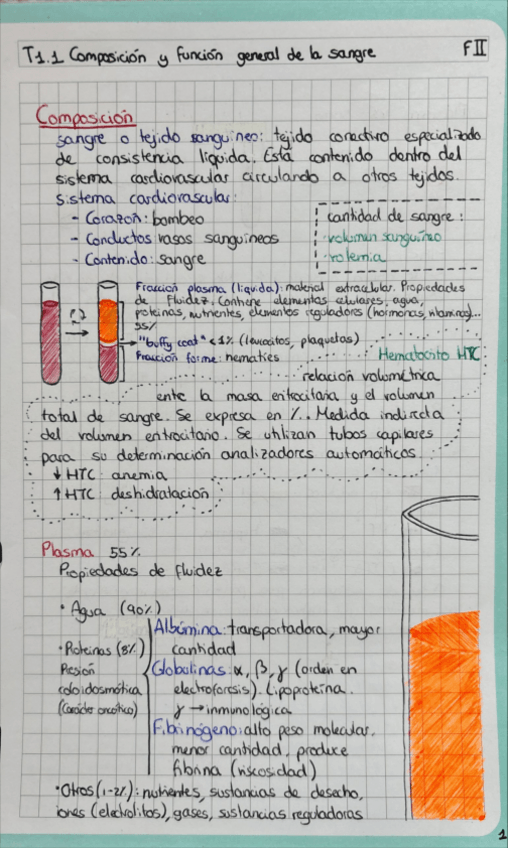 T1.1 Composición y función general de la sangre
FII
Composición
sangre o tejido sanguíneo: tejido conectivo especializado
de consistencia líquida. Está contenido dentro del
sistema cardiovascular circulando a otros tejidos.
sistema cardiovascular:
- Corazón: bombeo
- Conductos vasos sanguíneos
- Contenido: sangre
cantidad de sangre:
· volumen sanguíneo
· volemia
Fracción plasma (líquida): material extracelular. Propiedades
de fluidez. Contiene elementos celulares, agua,
proteínas, nutrientes, elementos reguladores (hormonas, vitaminas)...
55%
"buffy coat" <1% (leucocitos, plaquetas)
Fracción forme: hematíes
Hematocrito HTC
relación volumétrica
ente la masa eritrocitaria y el volumen
total de sangre. Se expresa en %. Medida indirecta
del volumen entrocitario. Se utilizan tubos capilares
para su determinación analizadores automáticos
↓ HTC: anemia
↑ HTC: deshidratación
Plasma 55%
Propiedades de fluidez
· Agua (90%)
· Proteínas (8%)
Presión
coloidosmótica
(Carácter oncótico)
Albúmina: transportadora, mayor
cantidad
Globulinas: α, β, γ (orden en
electroforesis). Lipoproteína.
γ → inmunológica
Fibrinógeno: alto peso molecular,
menor cantidad, produce
fibrina (viscosidad)
· Otros (1-2%): nutrientes, sustancias de desecho,
iones (electrolitos), gases, sustancias reguladoras
1